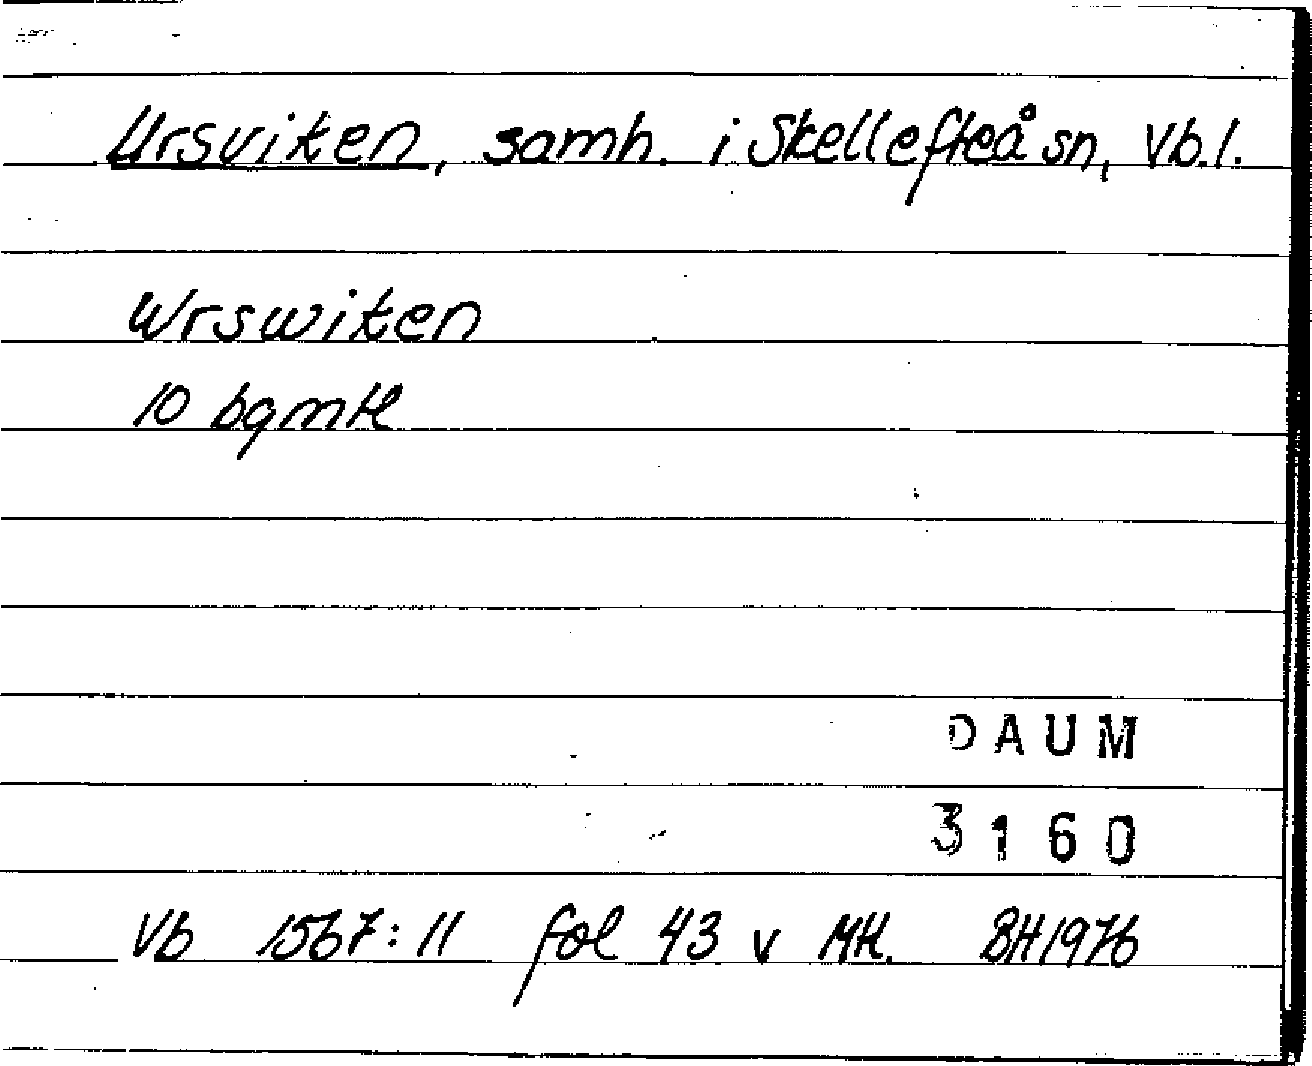 Ursviken, samh. i Skellefteå sn, Vb.l.
Wrswiken
10 bgmtl
DAUM
3160
Vb 1567:11 fol 43 v Mtl. BH1976